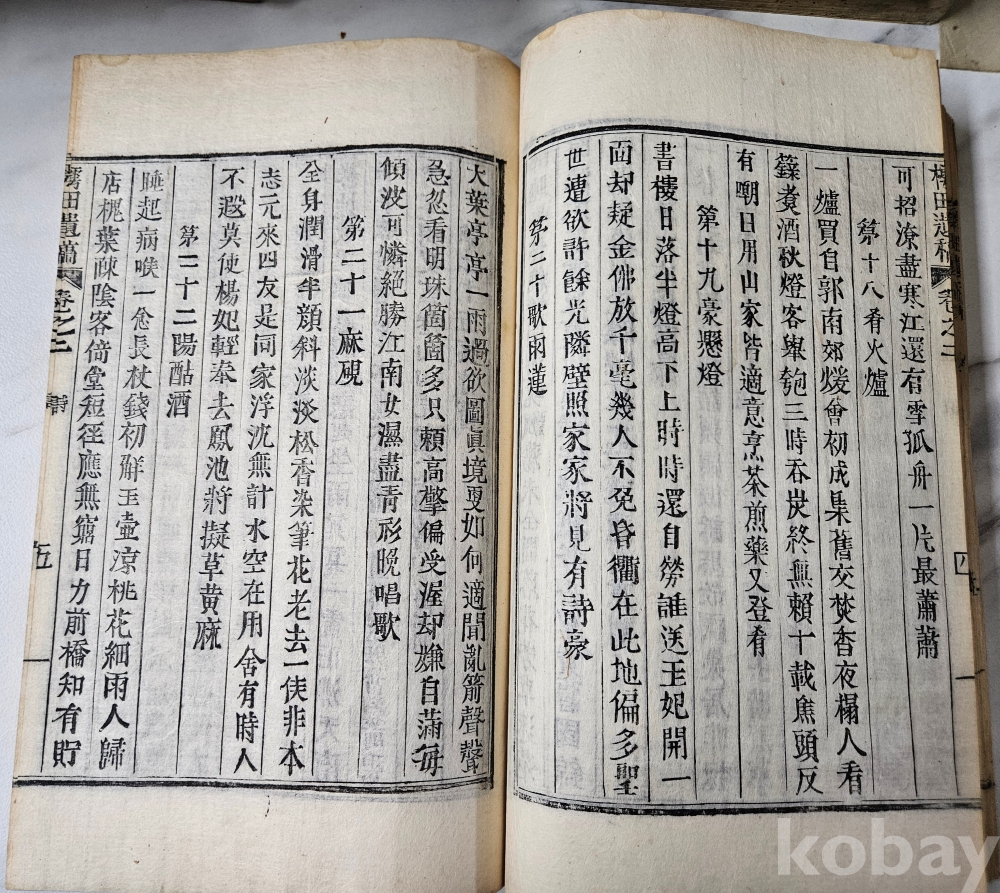 梅田遺稿 卷之二 四
可招潦盡寒江還有雪孤舟一片最蕭蕭
第十八肴火爐
一爐買自郭南郊煖會初成集舊交焚香夜榻人看
籙煑酒秋燈客擧匏三時吞炭終無賴十載焦頭反
有嘲日用山家皆適意烹茶煎藥又登肴
第十九豪懸燈
書樓日落半燈高下上時時還自勞誰送玉妃開一
面却疑金佛放千毫幾人不免昏衢在此地偏多聖
世遭欲許餘光隣壁照家家將見有詩豪
第二十歌雨蓮
大葉亭亭一雨過欲圖眞境更如何適聞亂箭聲聲
急忽看明珠箇箇多只賴高擎偏受渥却嫌自滿每
傾波可憐絕勝江南女濕盡靑衫晚唱歌
第二十一麻硯
全身潤滑半顔斜淡淡松香染筆花老去一使非本
志元來四友是同家浮沈無計水空在用舍有時人
不遐莫使楊妃輕奉去鳳池將擬草黄麻
第二十二陽酤酒
睡起病喉一忿長杖錢初解玉壺凉桃花細雨人歸
店槐葉疎陰客倚堂短徑應無窮日力前橋知有貯
梅田遺稿 卷之二 詩 五
kobay